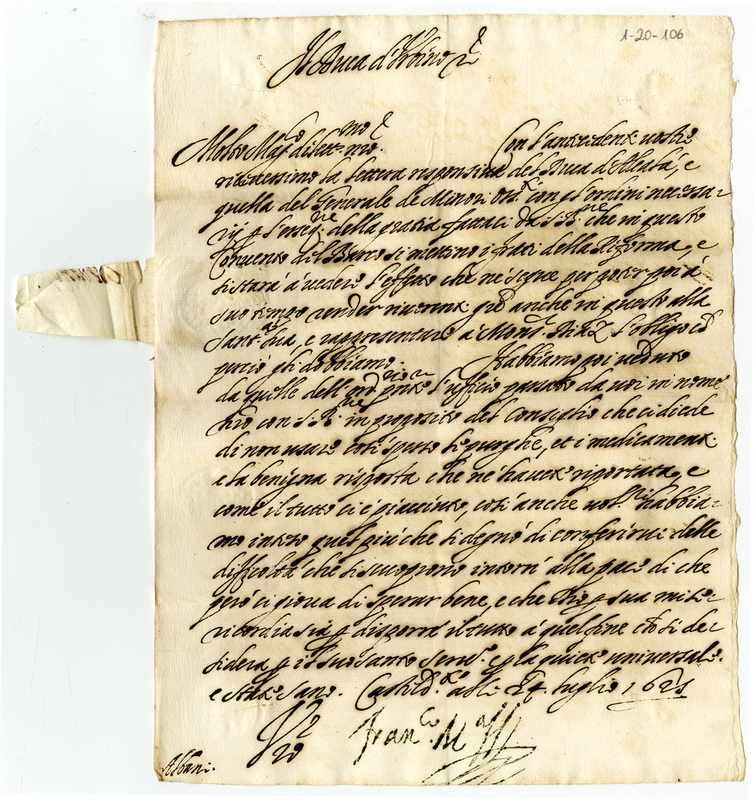 1-20-106
Il Duca d'Urbino &
Molto Mag.co dilett.mo n̄ro. Con l'antecedente vostra
ricevessimo la lettera responsiva del Duca d'Alcalà, e
quella del Generale de Minori con gl'ordini necessa-
rij p della gratia fattaci da S. B.ne che in questo
Convento del Barco si mettino i frati della Riforma, e
si starà à vedere l'effetto che ne segue per poter poi à
suo tempo render riverenti anche in questo alla
Sant.tà Sua, e rappresentare à Mons.r l'obligo
perciò gli dobbiamo. Habbiamo poi veduto
da quelle dell' l'ufficio passato da voi in nome
n̄ro con S. B.ne in proposito del Consiglio che ci diede
di non usare così spesso le purghe, et i medicamenti
e la benigna risposta che ne havete riportata, e
come il tutto ci è piaciuto, così anche habbia-
mo inteso quel più che si degnò di conferirvi delle
difficoltà che si scuoprono intorn' alla pace di che
però ci giova di sperar bene, e che Dio p sua mise-
ricordia sia p disporre il tutto à quel fine che si de-
sidera p il suo santo serv.o e p la quiete universale.
e state sano. Casteld.te alli 24 luglio 1621
Fran.co M.a
Abbati.